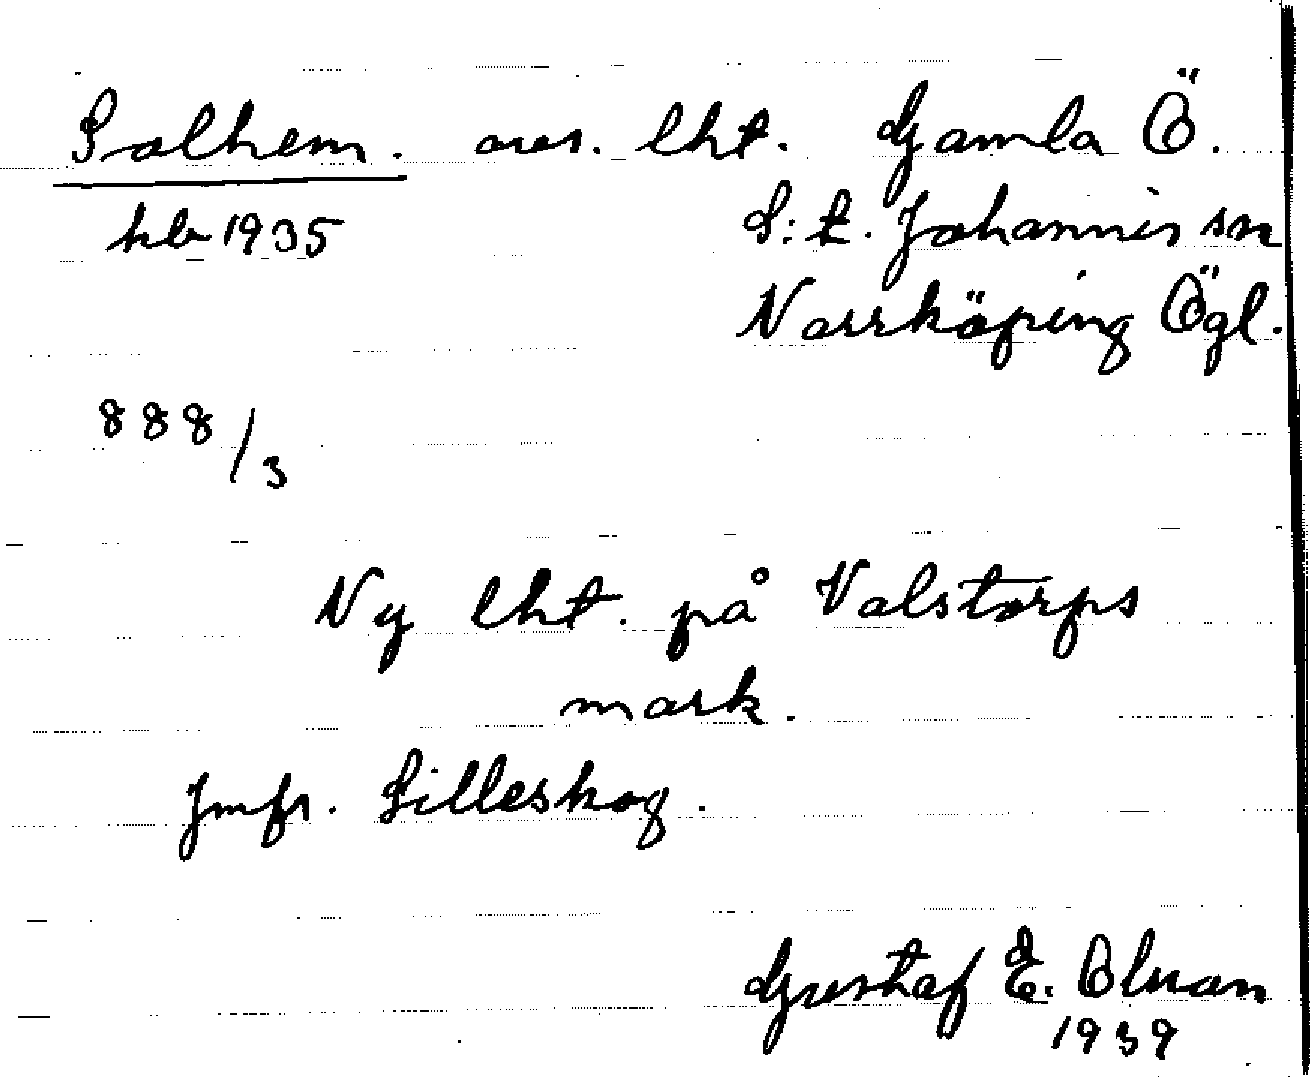 Solhem. avs. lht. Gamla Ö.
hb 1935 S:t. Johannis sn
Norrköping Ögl.
888/3
Ny lht. på Valstorps
mark.
Jmfr. Lilleskog.
Gustaf E. Olson
1939